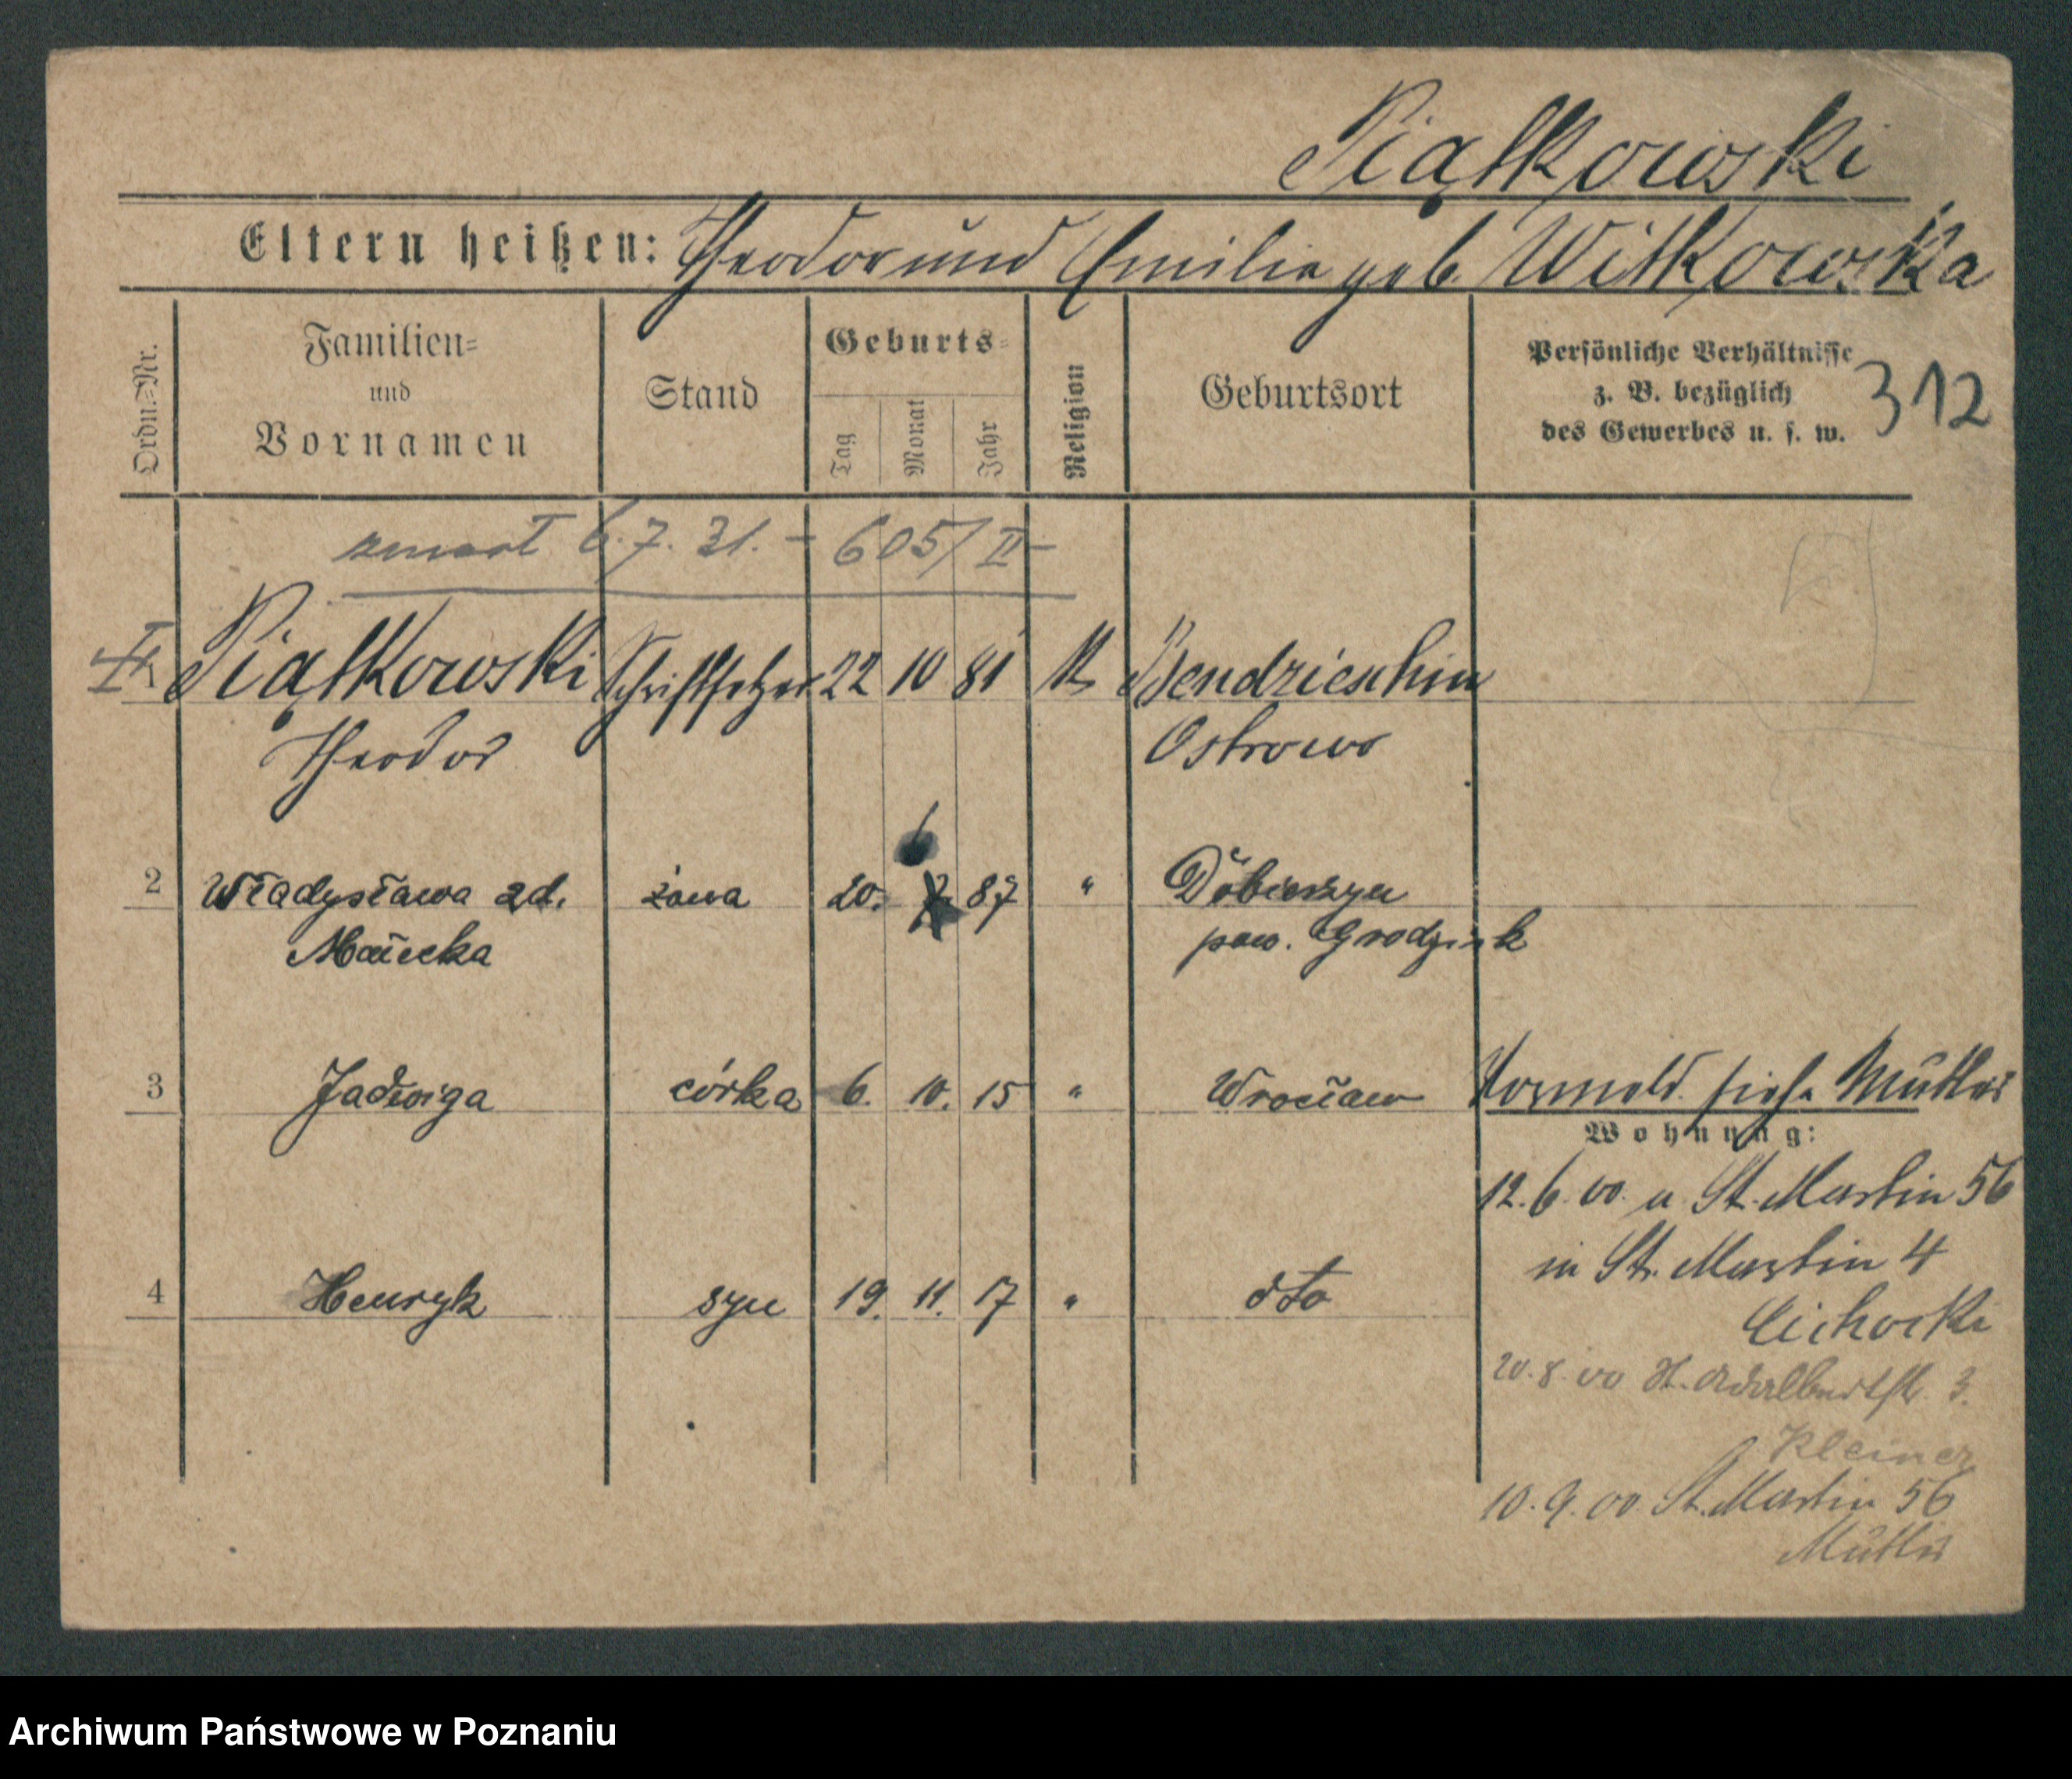 Piątkowski
Eltern heißen: Theodor und Emilie geb. Witkowska
Ordn.=Nr.
Familien=
und
Vornamen
Stand
Geburts=
Tag
Monat
Jahr
Religion
Geburtsort
Persönliche Verhältnisse
z. B. bezüglich
des Gewerbes u. s. w.
312
zmarł 6.7.31. – 605/II –
Piątkowski Schriftsetzer 22 10 81 k Bendzieschin
Theodor Ostrowo
2 Władysława zd. żona 20. 6 87 "
Małecka pow. Grodzisk
3 Jadwiga córka 6. 10. 15 " Wrocław Vormeld. siehe Mutter
Wohnung:
12.6.00. a St. Martin 56
in St. Martin 4
Cichocki
4 Henryk syn 19. 11. 17 " dto
20.8.00 St. Adalbertstr. 3.
Kleiner
10.9.00 St. Martin 56
Mutter
Archiwum Państwowe w Poznaniu